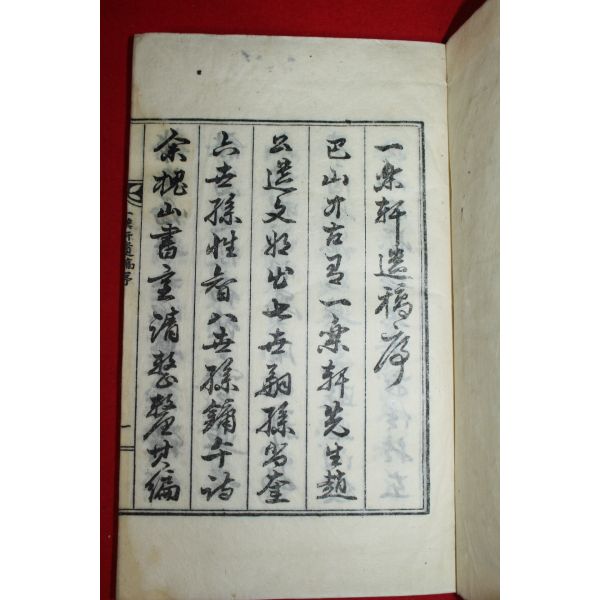 一樂軒遺稿序
巴山古有一樂軒先生趙
公遺文將出七世嗣孫奎
六世孫性八世孫鏞午訪
余槐山書室請整釐其編
一樂軒遺稿序
一